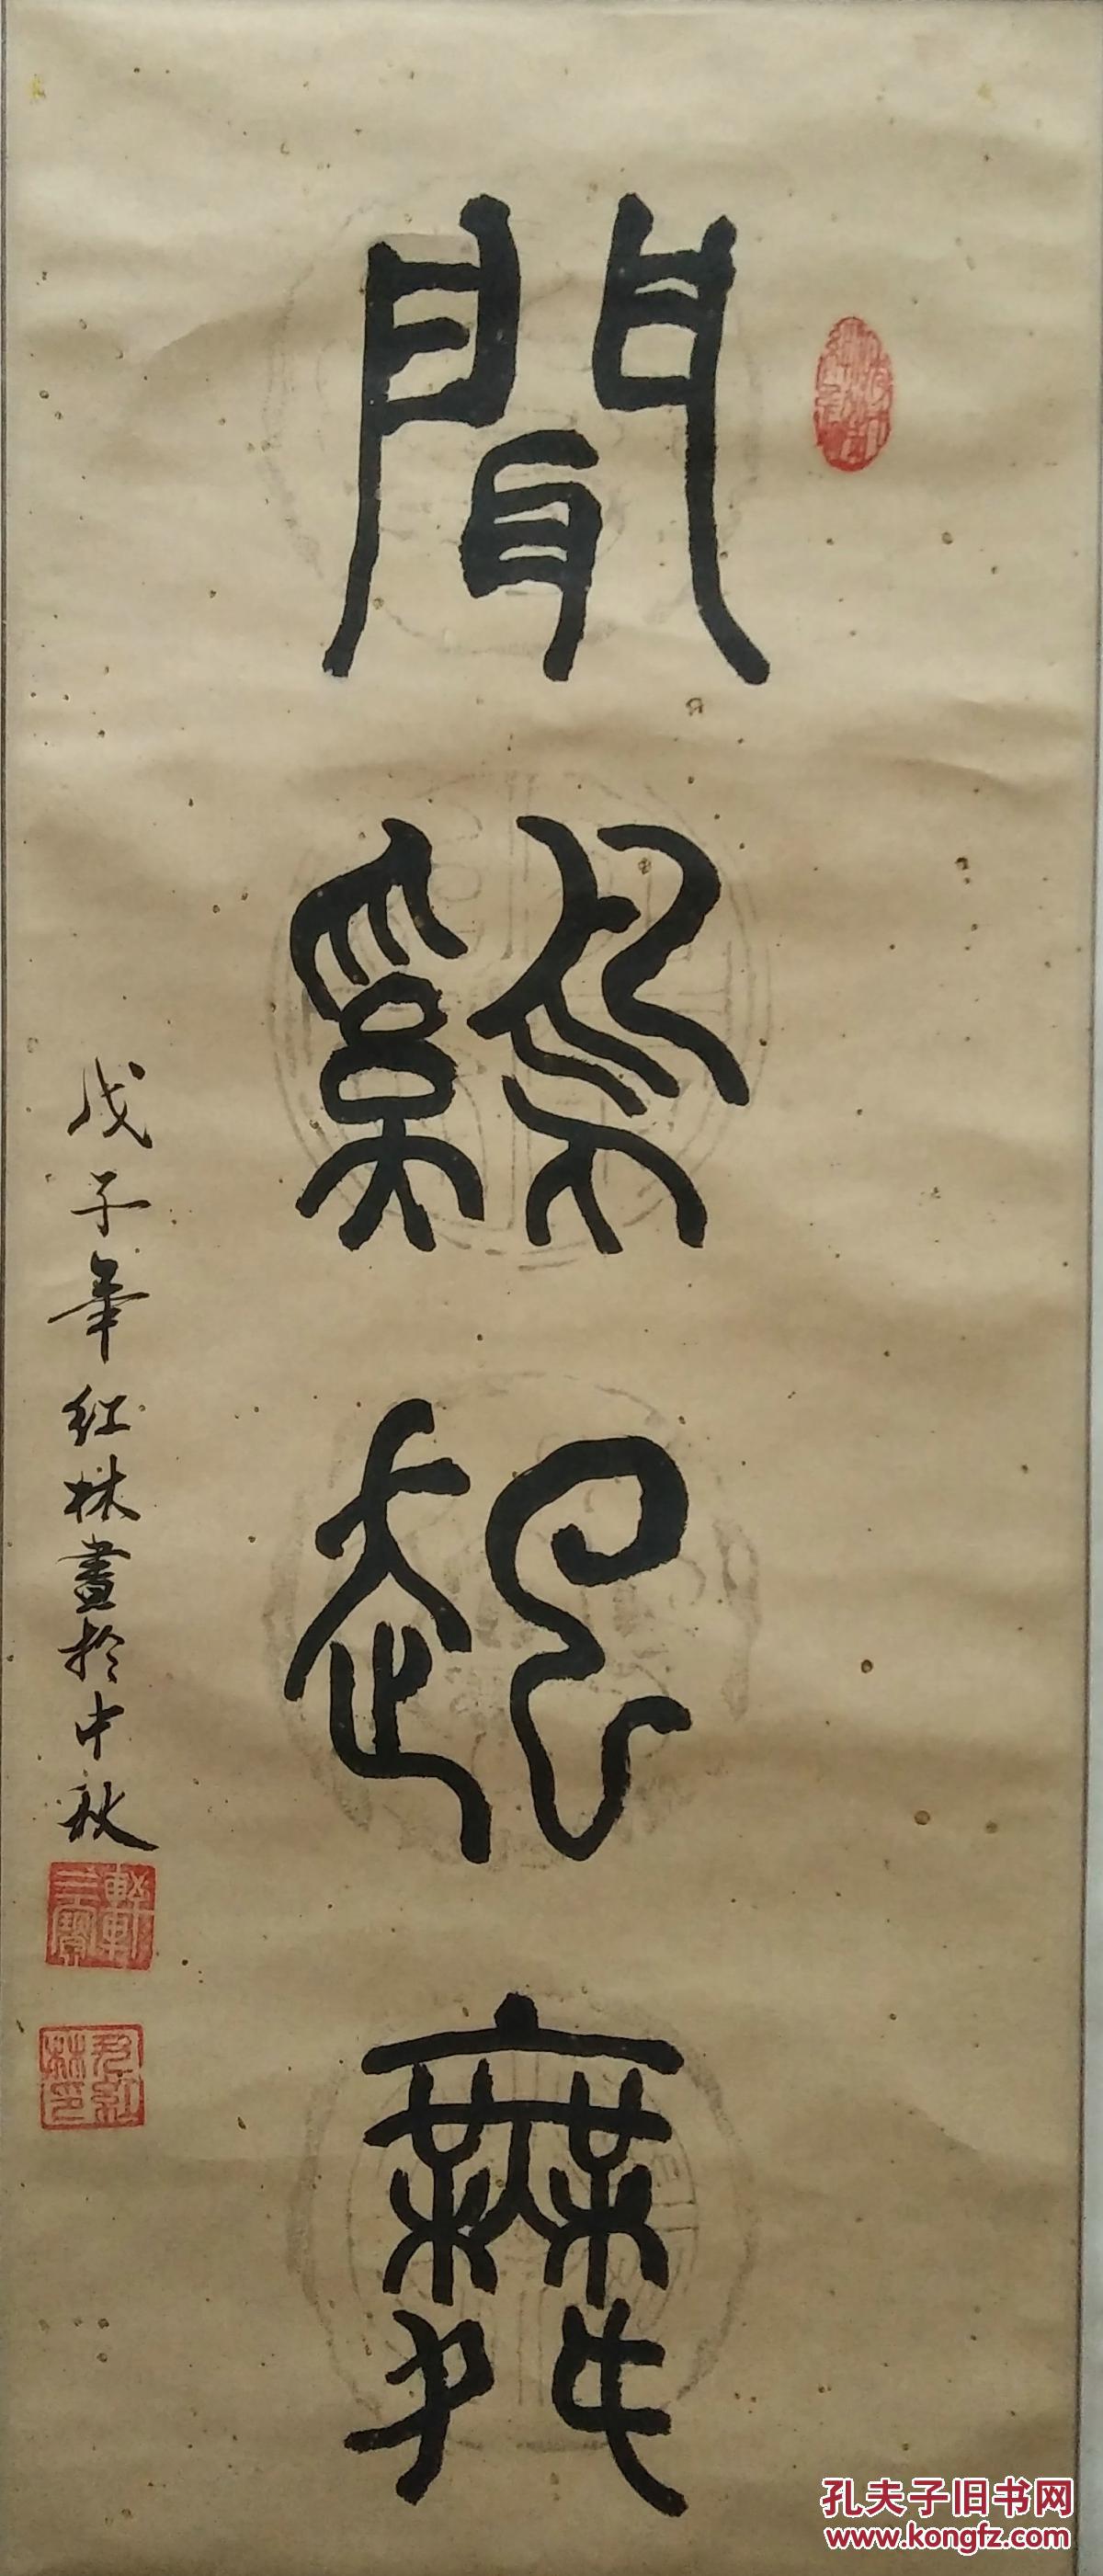 聞鷄起舞
戊子年红林書於中秋
孔夫子旧书网
www.kongfz.com